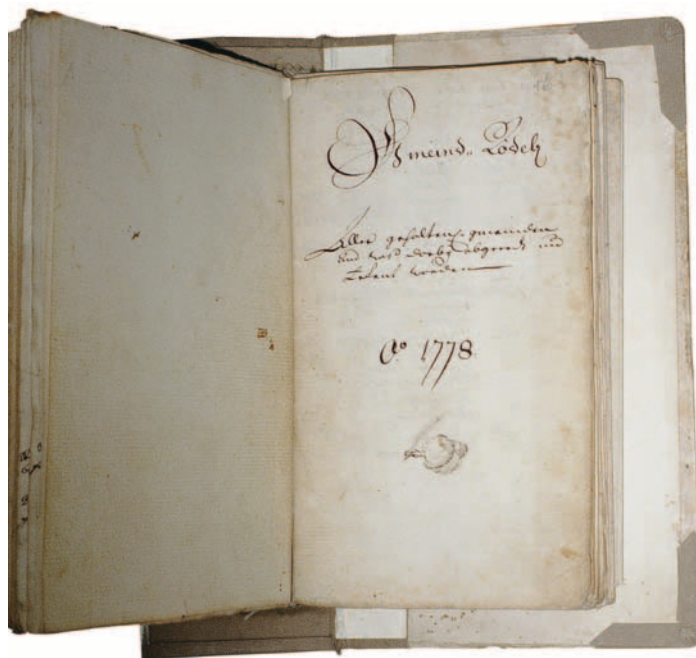 Gmeind-Rödel
Aller gehalten gmeinden
und was dorbej abgeret und
erkent worden
Aº 1778